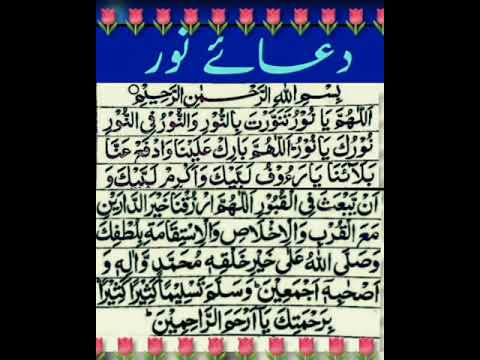 دعائے نور
بِسْمِ اللهِ الرَّحْمٰنِ الرَّحِيْمِ
اَللّٰهُمَّ يَا نُوْرُ تَنَوَّرْتَ بِالنُّوْرِ وَالنُّوْرُ فِى النُّوْرِ
نُوْرُكَ يَا نُوْرُ اَللّٰهُمَّ بَارِكْ عَلَيْنَا وَادْفَعْ عَنَّا
بَلَآئَنَا يَا رَءُوْفُ لَبَّيْكَ وَاَكْرِمْ لَبَّيْكَ وَ
اَنْ تَبْعَثَ فِى الْقُبُوْرِ اَللّٰهُمَّ ارْزُقْنَا خَيْرَ الدَّارَيْنِ
مَعَ الْقُرْبِ وَالْاِخْلَاصِ وَالْاِسْتِقَامَةِ بِلُطْفِكَ
وَصَلَّى اللهُ عَلٰى خَيْرِ خَلْقِهٖ مُحَمَّدٍ وَّاٰلِهٖ وَ
اَصْحٰبِهٖ اَجْمَعِيْنَ وَسَلَّمَ تَسْلِيْمًا كَثِيْرًا كَثِيْرًا
بِرَحْمَتِكَ يَا اَرْحَمَ الرَّاحِمِيْنَ